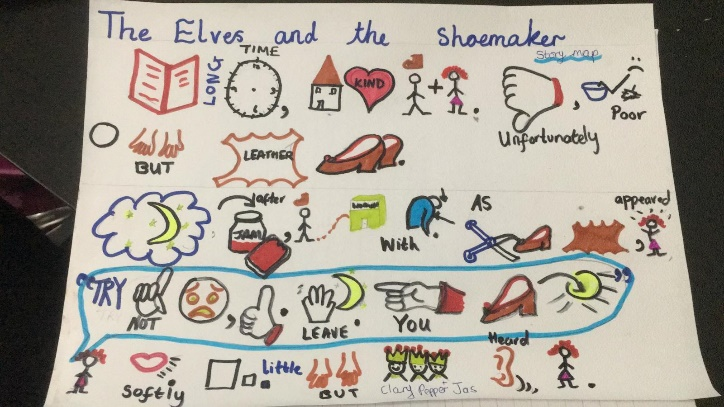 The Elves and the Shoemaker
Story map
LONG TIME KIND
Unfortunately Poor
BUT LEATHER
after JAM With AS appeared
"TRY NOT LEAVE. YOU"
Softly Little BUT Clary Pepper Jas Heard